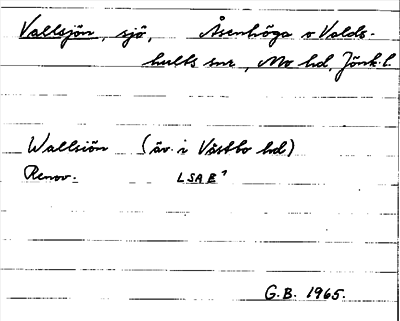 Vallsjön, sjö, Åsenhöga o Valds-
hults snr, Mo hd, Jönk. l.
Wallsiön (äv. i Västbo hd)
Renov. LSA B¹
G.B. 1965.